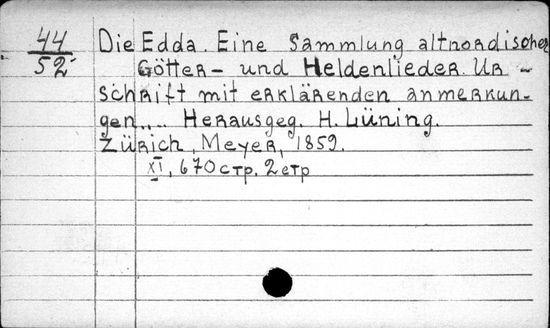 44
52
Die Edda. Eine Sammlung altnordischer
Götter- und Heldenlieder. Ur-
schrift mit erklärenden anmerkun-
gen,... Herausgeg. H. Lüning.
Zürich, Meyer, 1859.
XI, 670 стр. 2 етр